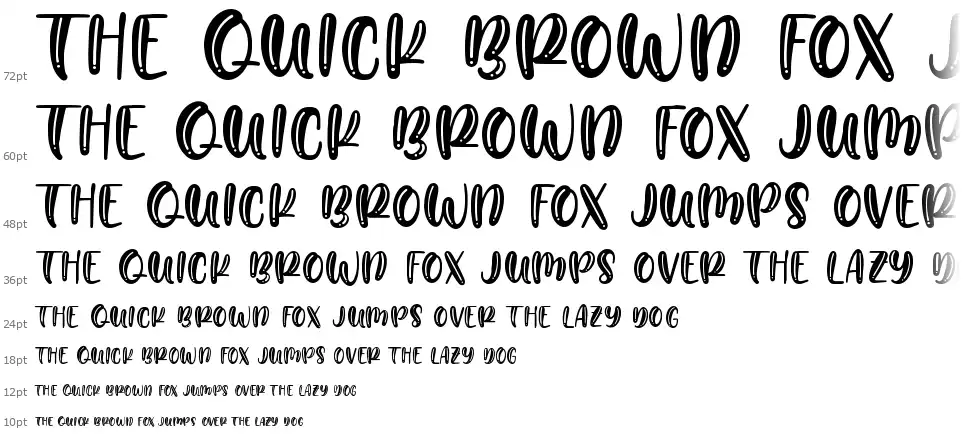 72pt THE QUICK BROWN FOX J
60pt THE QUICK BROWN FOX JUMP
48pt THE QUICK BROWN FOX JUMPS OVER
36pt THE QUICK BROWN FOX JUMPS OVER THE LAZY D
24pt THE QUICK BROWN FOX JUMPS OVER THE LAZY DOG
18pt THE QUICK BROWN FOX JUMPS OVER THE LAZY DOG
12pt THE QUICK BROWN FOX JUMPS OVER THE LAZY DOG
10pt THE QUICK BROWN FOX JUMPS OVER THE LAZY DOG